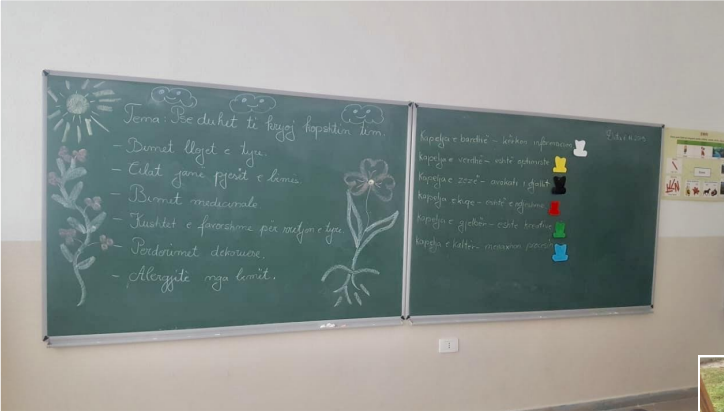 Tema: Pse duhet të krijoj kopshtin tim.
- Bimët llojet e tyre
- Cilat janë pjesët e bimës
- Bimët medicinale
- Kushtet e favorshme për rritjen e tyre.
- Përdorimet dekoruese.
- Alergjitë nga bimët.
Kapelja e bardhë - kërkon informacion
Kapelja e verdhë - është optimiste
Kapelja e zezë -
Kapelja e kuqe - është e
Kapelja e gjelbër - është kreative
Kapelja e kaltër -